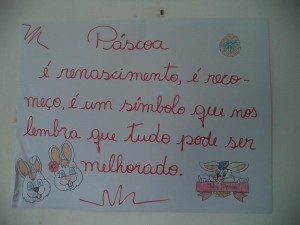 Páscoa
é renascimento, é reco-
meço, é um símbolo que nos
lembra que tudo pode ser
melhorado.